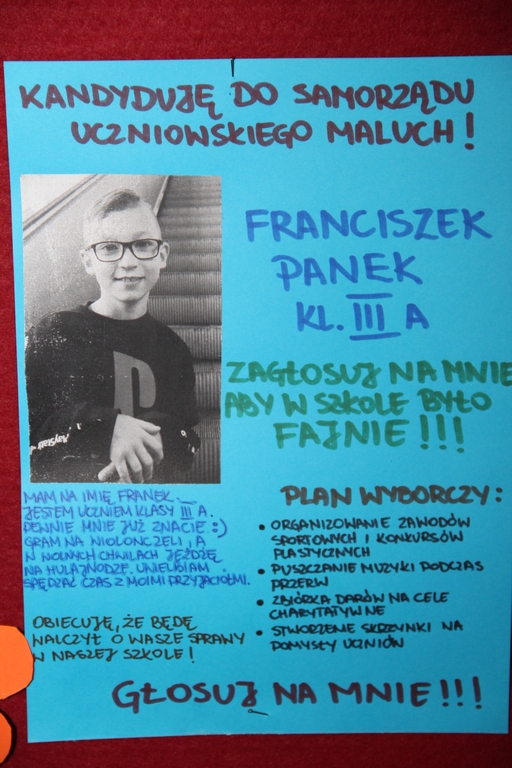 KANDYDUJĘ DO SAMORZĄDU
UCZNIOWSKIEGO MALUCH!
FRANCISZEK
PANEK
KL. III A
ZAGŁOSUJ NA MNIE
ABY W SZKOLE BYŁO
FAJNIE!!!
MAM NA IMIĘ FRANEK.
JESTEM UCZNIEM KLASY III A.
PEWNIE MNIE JUŻ ZNACIE :)
GRAM NA WIOLONCZELI, A
W WOLNYCH CHWILACH JEŻDŻĘ
NA HULAJNODZE. UWIELBIAM
SPĘDZAĆ CZAS Z MOIMI PRZYJACIÓŁMI.
OBIECUJĘ, ŻE BĘDĘ
WALCZYŁ O WASZE SPRAWY
W NASZEJ SZKOLE!
PLAN WYBORCZY:
• ORGANIZOWANIE ZAWODÓW
SPORTOWYCH I KONKURSÓW
PLASTYCZNYCH
• PUSZCZANIE MUZYKI PODCZAS
PRZERW
• ZBIÓRKA DARÓW NA CELE
CHARYTATYWNE
• STWORZENIE SKRZYNKI NA
POMYSŁY UCZNIÓW
GŁOSUJ NA MNIE!!!